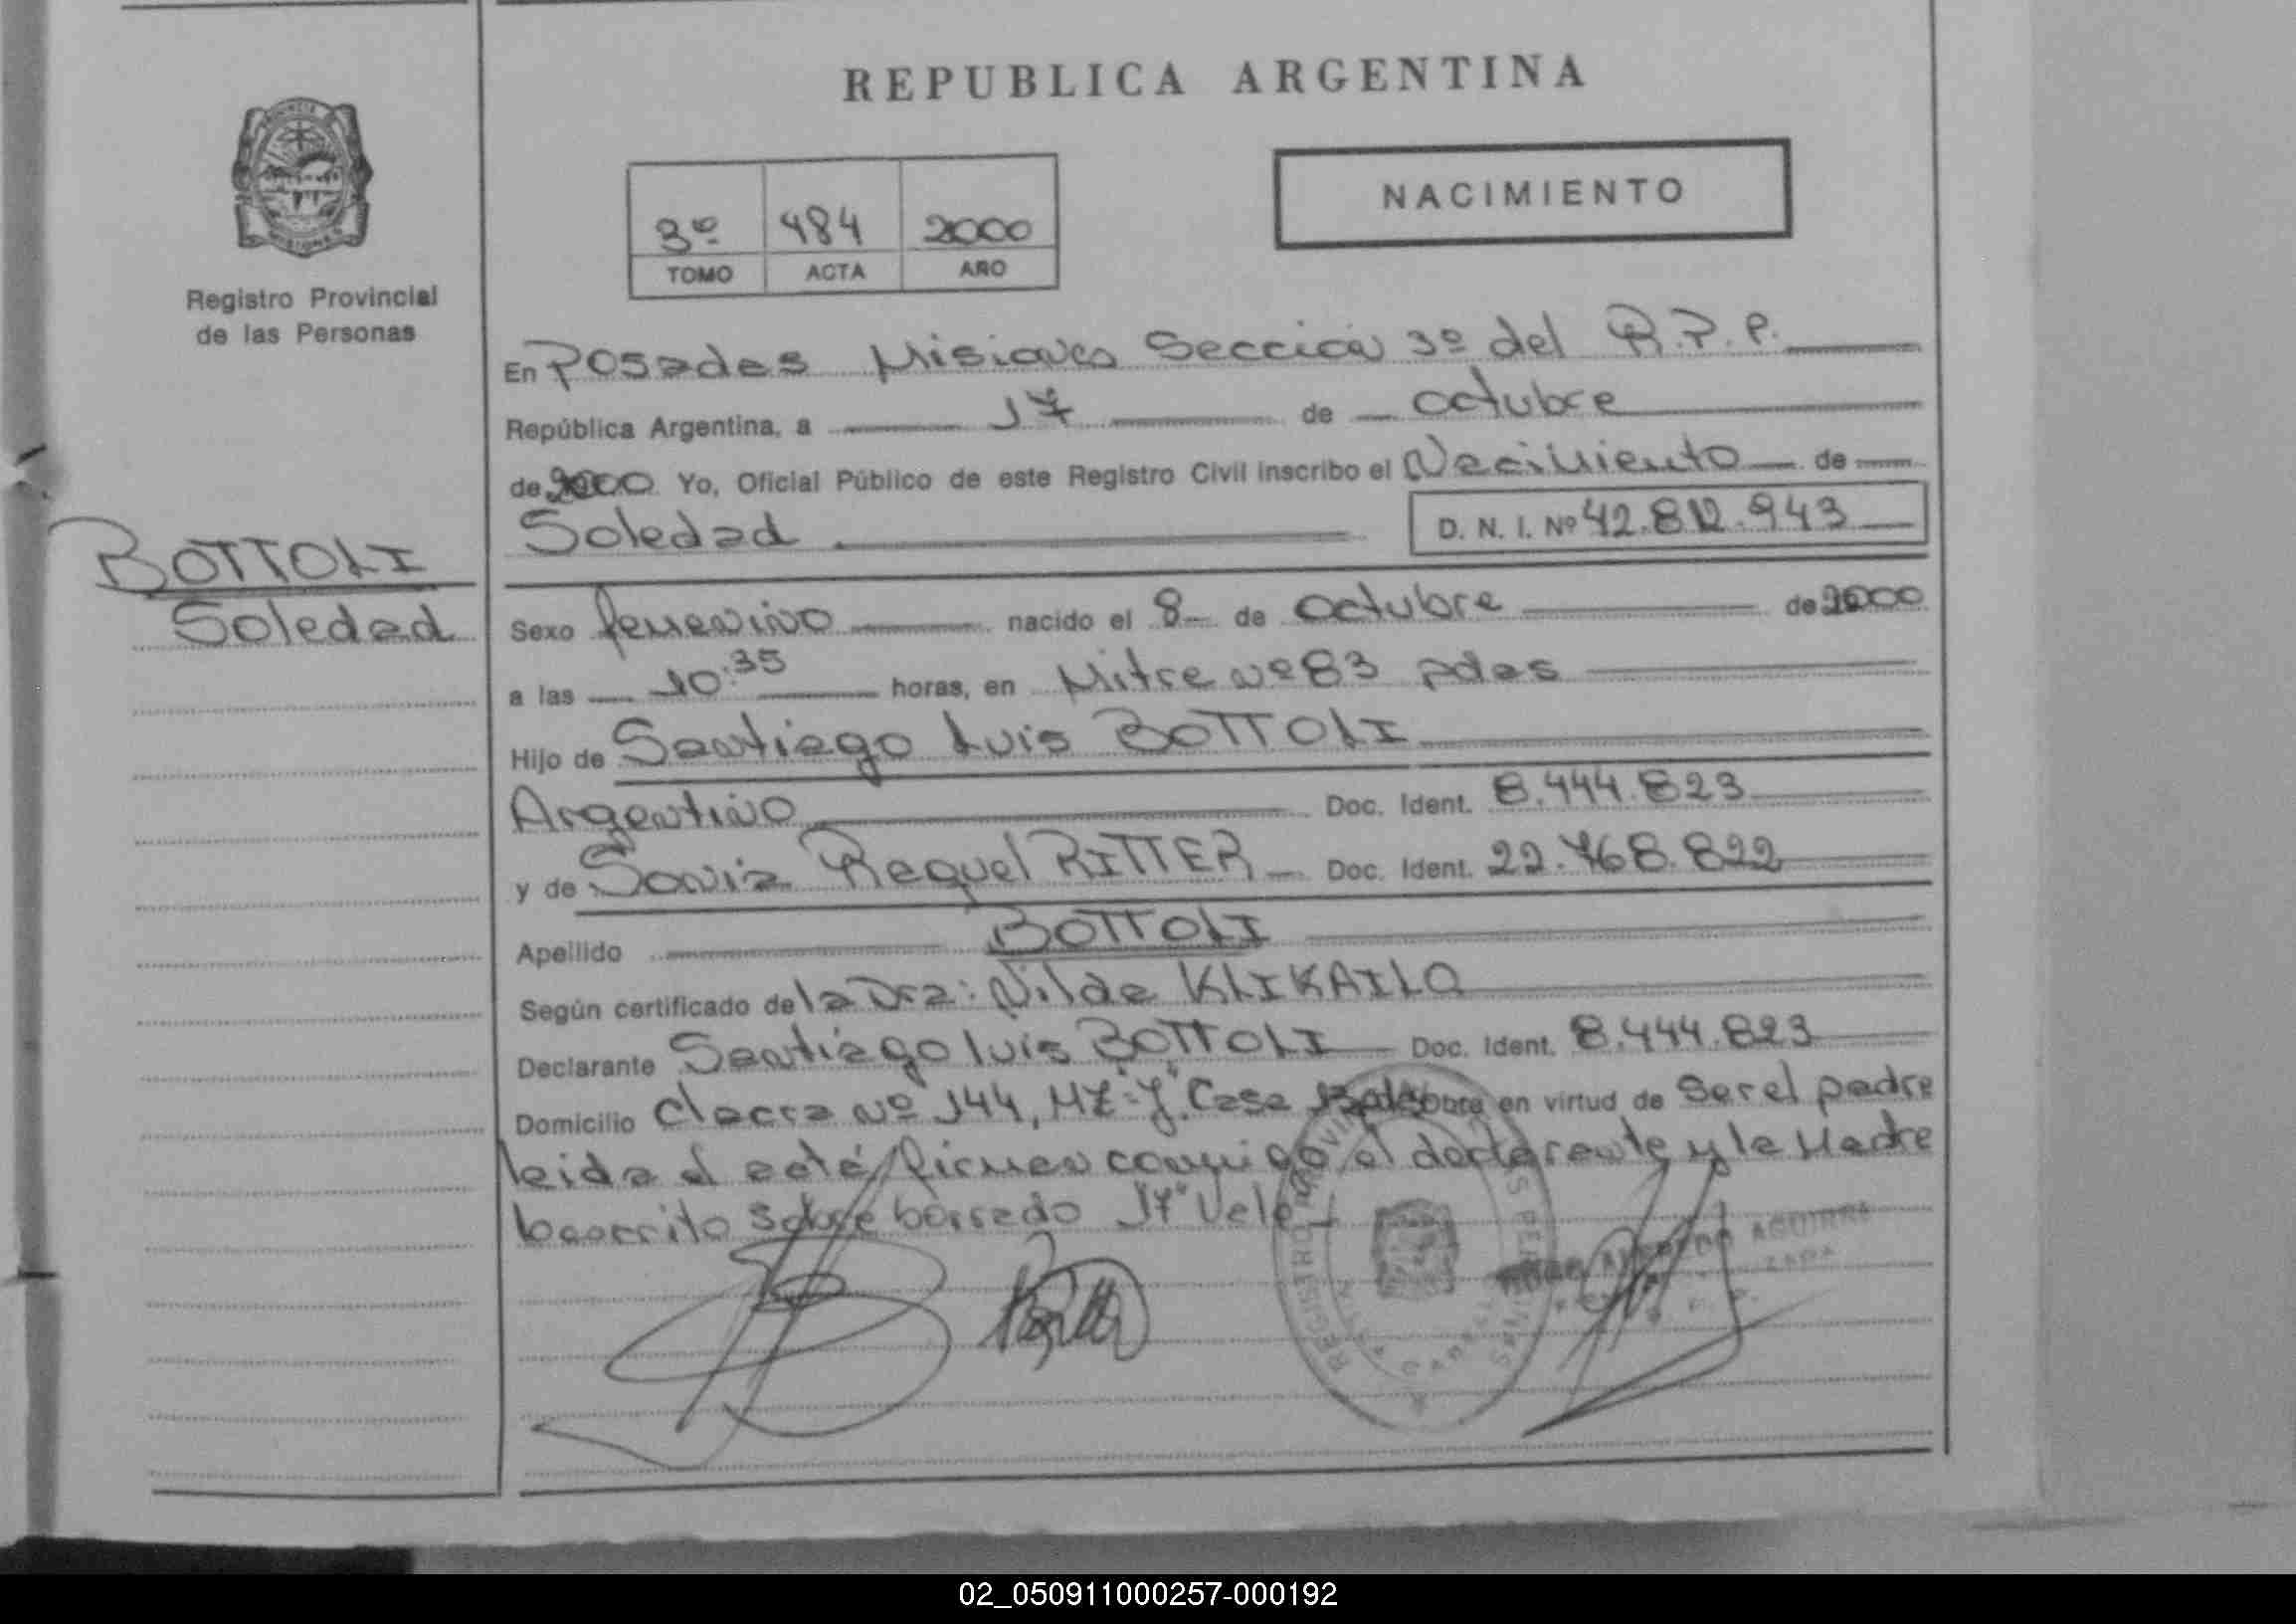 REPUBLICA ARGENTINA
NACIMIENTO
3º 484 2000
TOMO ACTA AÑO
Registro Provincial
de las Personas
En Posadas Misiones Sección 3º del R.P.P.
República Argentina, a 17 de octubre
de 2000 Yo, Oficial Público de este Registro Civil inscribo el Nacimiento de
Soledad D. N. I. Nº 42.812.943
BOTTOLI
Soledad
Sexo femenino nacido el 8 de octubre de 2000
a las 10:35 horas, en Mitre nº 83 pdas
Hijo de Santiago Luis BOTTOLI
Argentino Doc. Ident. 8.444.823
y de Sonia Raquel RITTER Doc. Ident. 22.768.822
Apellido BOTTOLI
Según certificado de la Dra: Nilda KLIKAILO
Declarante Santiago Luis BOTTOLI Doc. Ident. 8.444.823
Domicilio chacra nº 144, MZ "J" Casa obra en virtud de ser el padre
leida el acta firman conmigo el declarante y la Madre
sobre borrado 17" Vale
REGISTRO
AGUIRRE
02_050911000257-000192